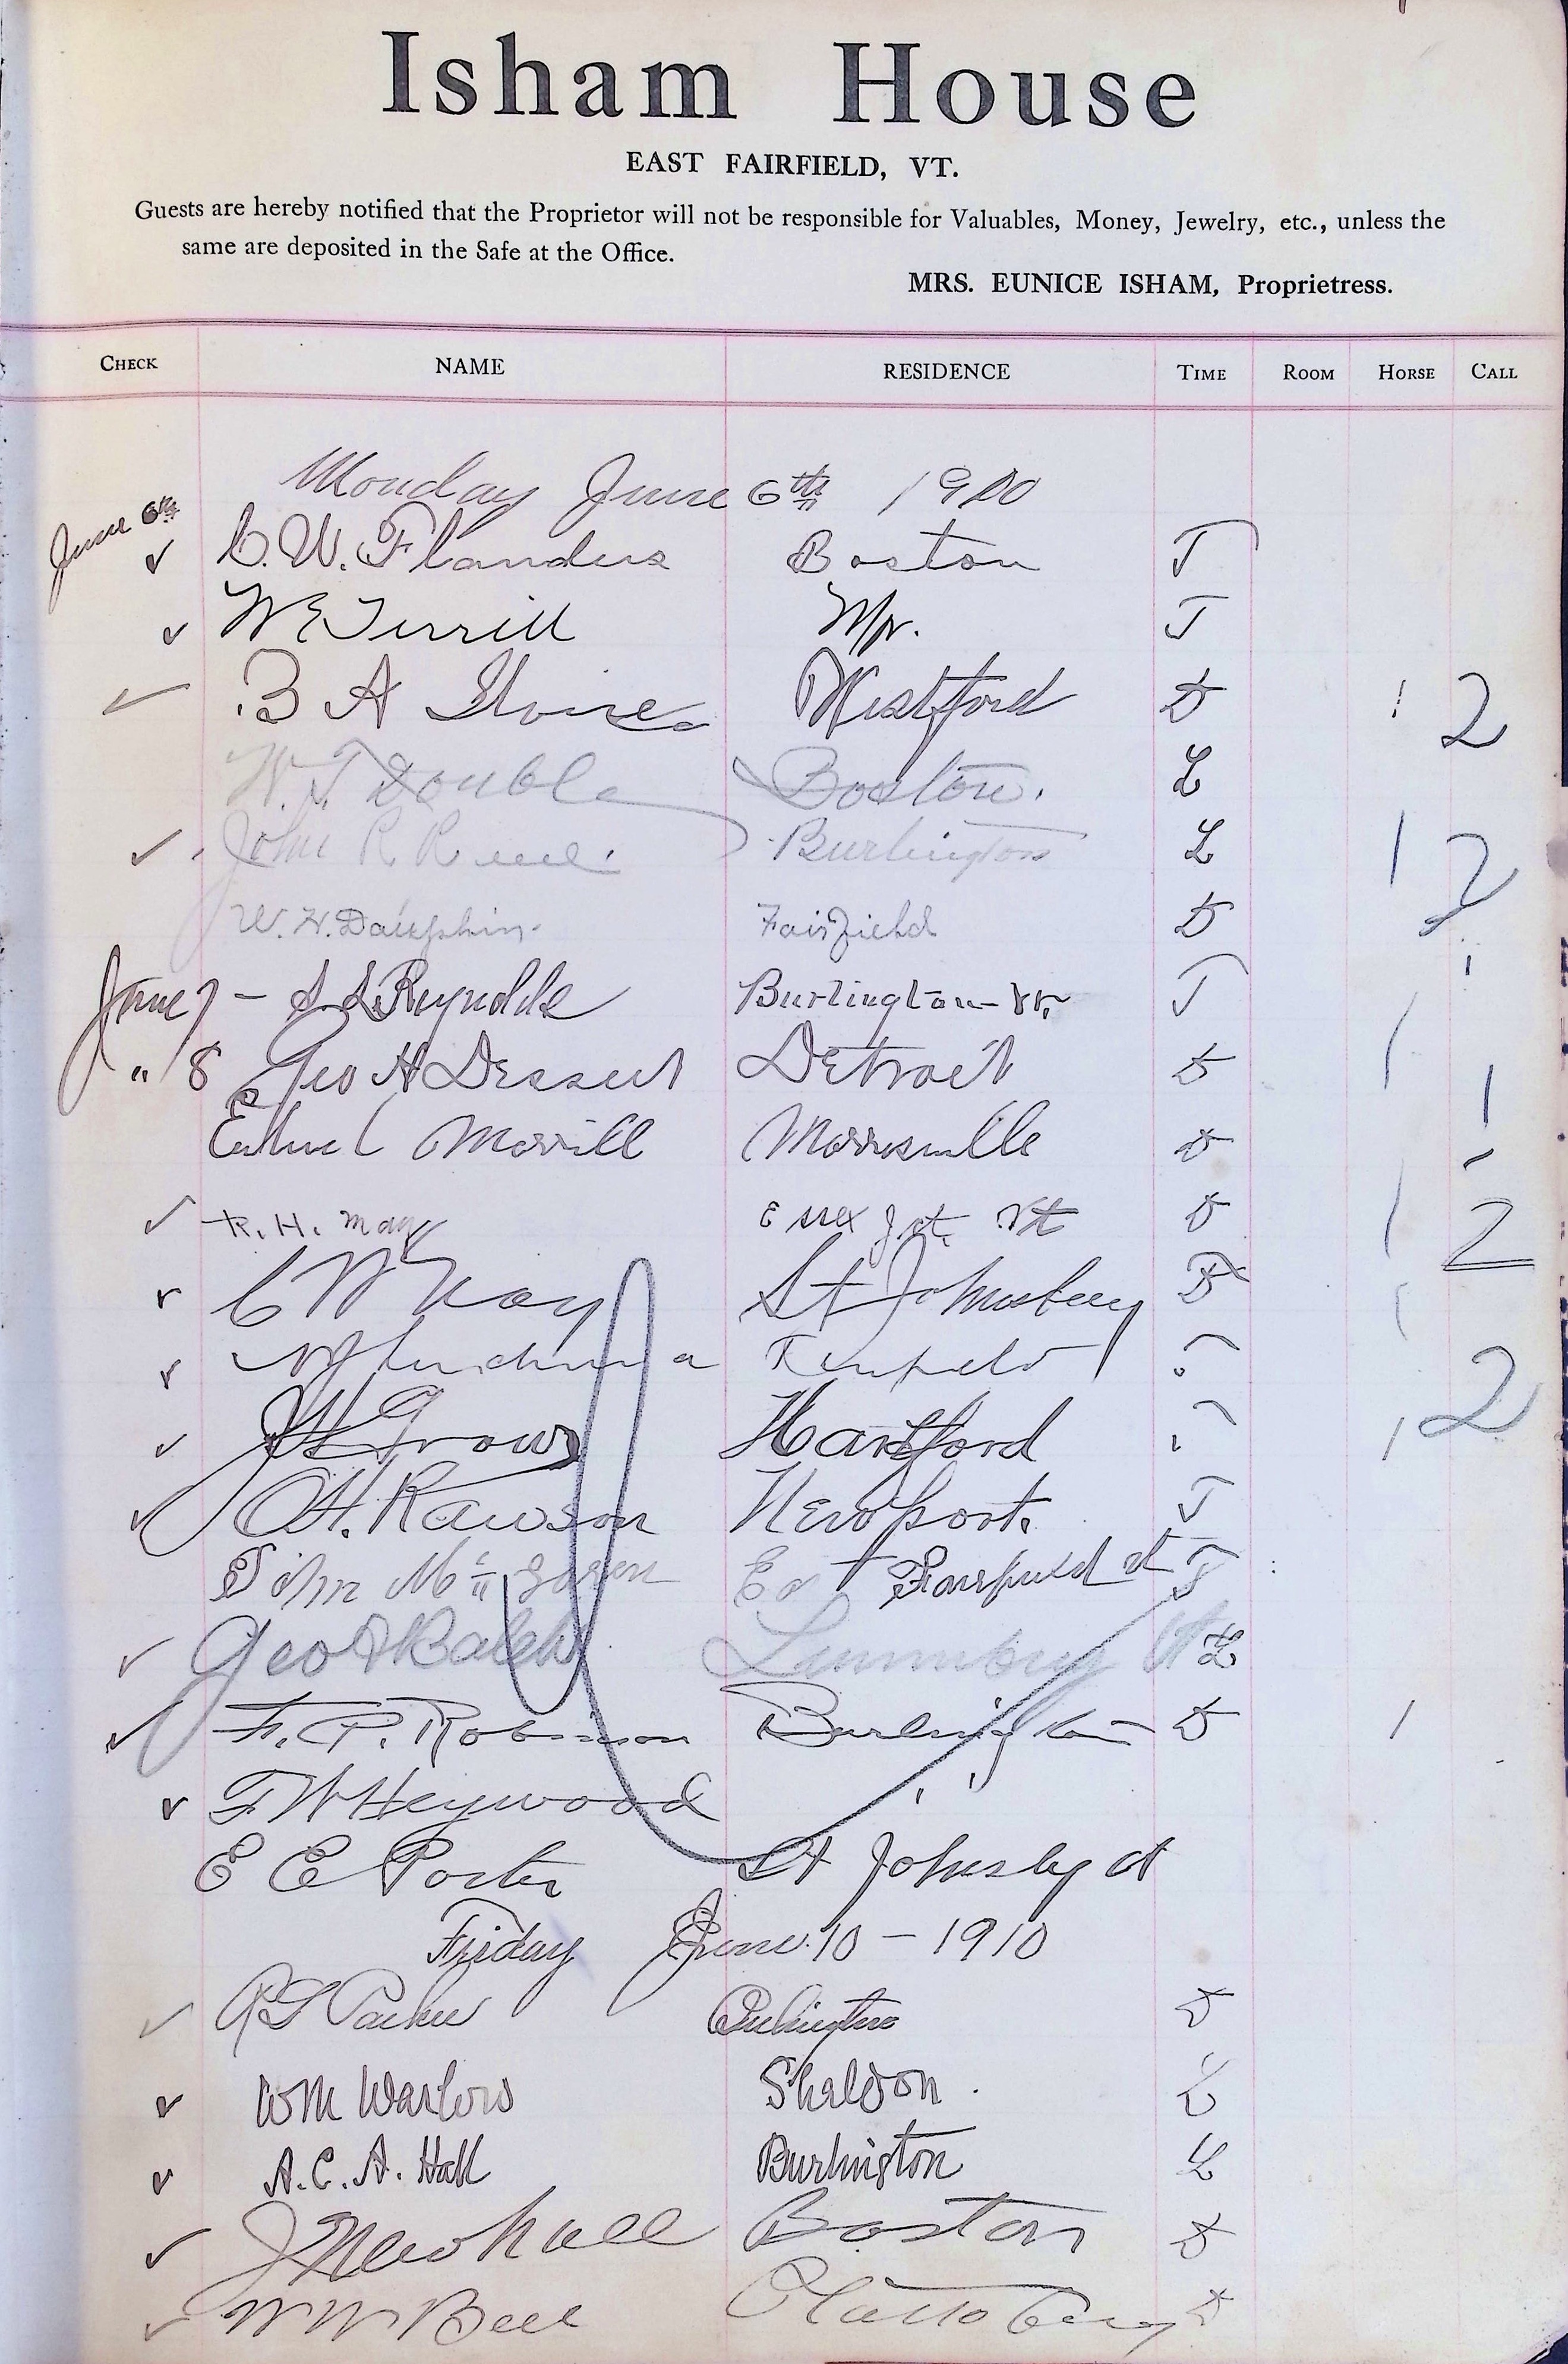 Isham House
EAST FAIRFIELD, VT.
Guests are hereby notified that the Proprietor will not be responsible for Valuables, Money, Jewelry, etc., unless the
same are deposited in the Safe at the Office.
MRS. EUNICE ISHAM, Proprietress.
CHECK NAME RESIDENCE TIME ROOM HORSE CALL
Monday June 6th 1910
June 6th
C. W. Flanders Boston T
W E Terrill Mpr. T
B A Westford D 1 2
W. T. Double Boston. L
John R Burlington L 1 2
W. H. Dauphin Fairfield D
June 7 - S. L. Reynolds Burlington Vt. T
" 8 Geo H Dessert Detroit D 1
Ethel Morrill Morrisville D 1
R. H. May Essex Jct. Vt D 1 2
C W Nay St Johnsbury D
Hartford 2
O. H. Rawson Newport. T
John East Fairfield Vt T
Geo Balch Lunenburg Vt L
F. P. Robinson Burlington D 1
F W Heywood " "
E E Porter St Johnsby Vt
Friday June 10 - 1910
Parker Burlington D
Wm Warlow Sheldon. L
A. C. A. Hall Burlington L
J Newhall Boston D
W W Bell Plattsburg D